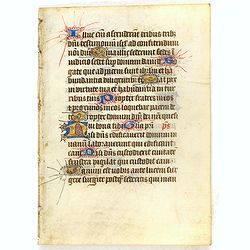 Illuc eni ascenderunt tribus trib
dni testimonium isrl ad confitendum
nomi dni Quia illic sederunt sedes
in iudicio sedes sup domum dauid Ro
gate que ad pacem sunt ihrlm et ha
bundantia diligentib te Fiat pax
in uirtute tua et habundantia in tur
ribus tuis Propter fratres meos
et proximos meos loquebar pacem de
te Propter domum dni dei nri quesi
ui bona tibi Gloria pri ps
Nisi dns edificauerit domum in
uanum laborauerunt qui edificant
eam Nisi dns custodierit ciuitatem
frustra uigilat qui custodit eam
Vanum est uobis ante lucem sur
gere surgite postq sederitis qui man